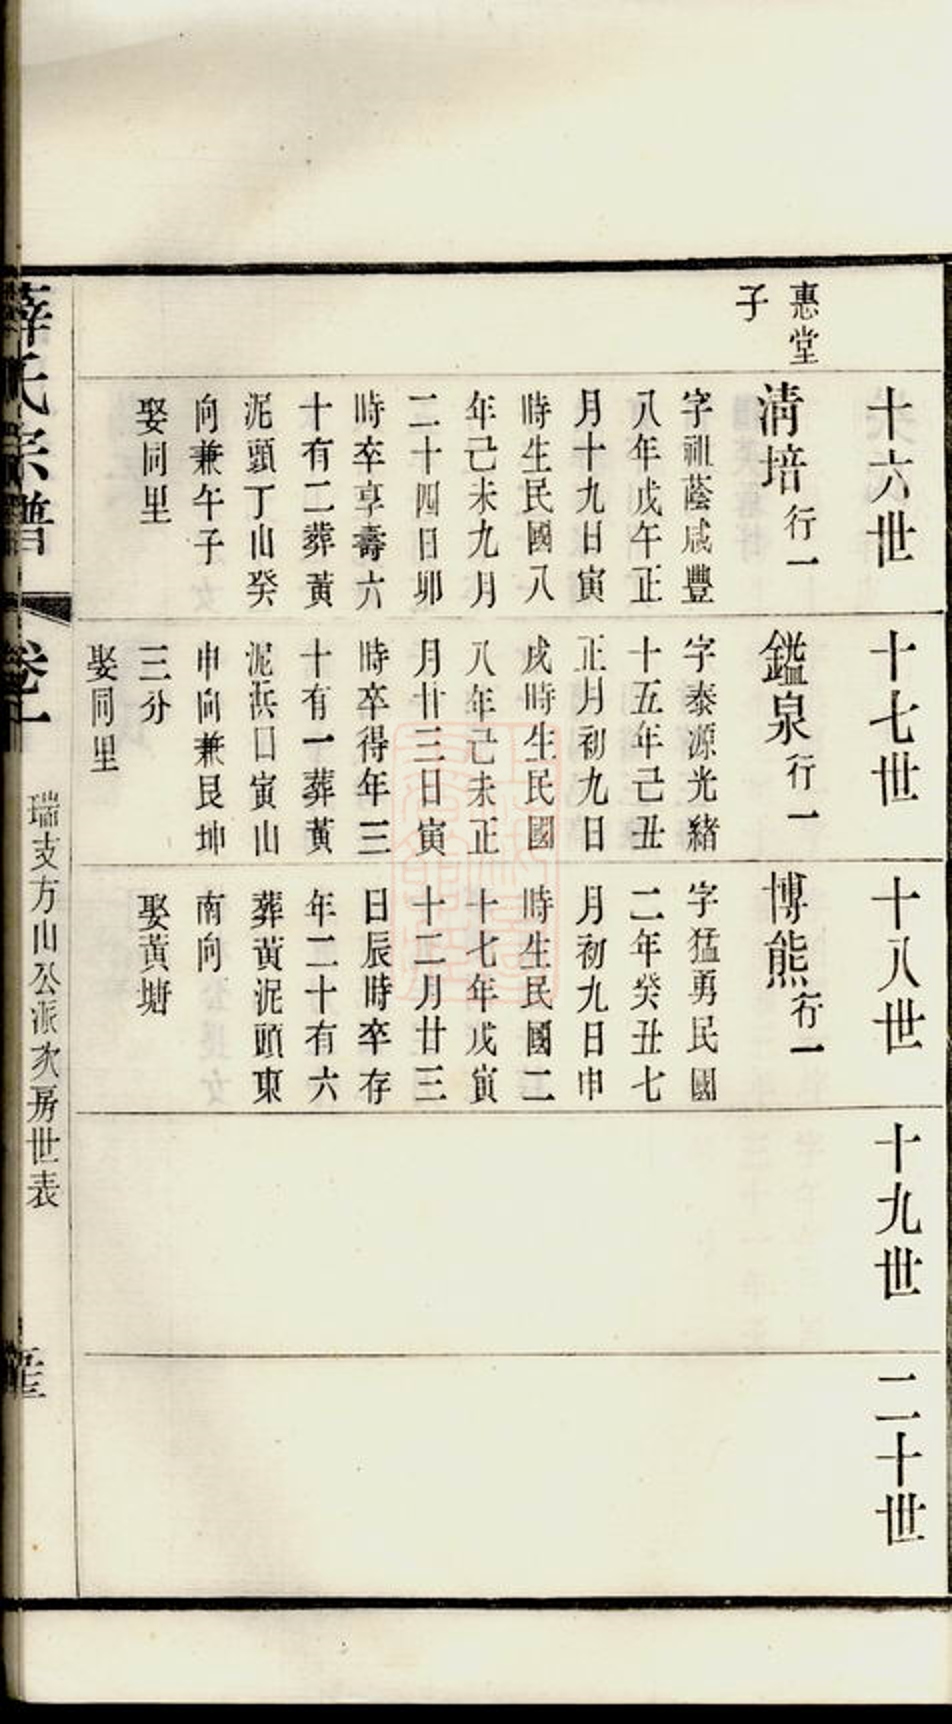 十六世
十七世
十八世
十九世
二十世
惠堂
子
清培行一
字祖蔭咸豐
八年戊午正
月十九日寅
時生民國八
年己未九月
二十四日卯
時卒享壽六
十有二葬黃
泥頭丁山癸
向兼午子
娶同里
鑑泉行一
字泰源光緒
十五年己丑
正月初九日
戌時生民國
八年己未正
月廿三日寅
時卒得年三
十有一葬黃
泥浜口寅山
申向兼艮坤
三分
娶同里
博熊行一
字猛勇民國
二年癸丑七
月初九日申
時生民國二
十七年戊寅
十二月廿三
日辰時卒存
年二十有六
葬黃泥頭東
南向
娶黃塘
薛氏宗譜
卷
瑞支方山公派次房世表